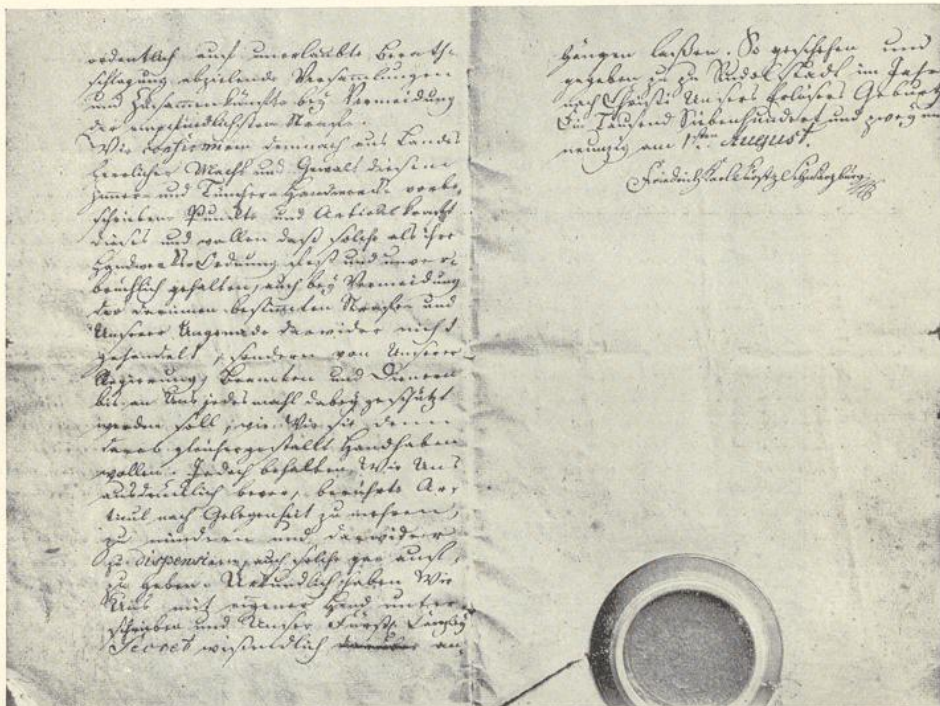 ordentlich auf unerlaubte Berath-
schlagung abzielende Versammlungen
und Zusammenkünfte bey Vermeidung
der empfindlichsten Strafe.
Wir confirmiren demnach aus Landes
Herrlicher Macht und Gewalt diesem
Zimmer- und Tüncher-Handwerck vorbe-
schriebene Punkte und Articul krafft
dieses und wollen daß solche als ihre
Handwercks Ordnung fest und unver-
brüchlich gehalten, auch bey Vermeidung
der darinnen bestimmten Strafen und
Unserer Ungenade darwider nicht
gehandelt, sondern von Unserer
Regierung, Beamten und Dienern
bis an Uns jedesmahl dabey geschützt
werden soll, wie Wir sie denn
darob gleichergestallt Handhaben
wollen. Jedoch behalten Wir Uns
ausdrücklich bevor, berührte Ar-
ticul nach Gelegenheit zu mehren,
zu mindern und darwider
zu dispensiren, auch solche gar auf-
zu heben. Uhrkundlich haben Wir
Uns mit eigener Hand unter-
schrieben und Unser Fürstl. Canzley
Secret wißendlich an-
hängen laßen. So geschehen und
gegeben zu Rudolstadt im Jahr
nach Christi Unsers Erlösers Geburth
Ein Tausend Siebenhundert und zwey und
neunzig am 1sten August.
Friedrich Karl Fürst z. Schwarzburg